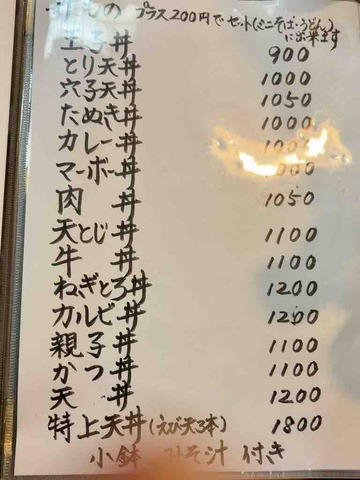 丼もの プラス200円でセット(ミニそば・うどん)に出来ます
玉子丼 900
とり天丼 1000
穴子天丼 1050
たぬき丼 1000
カレー丼
マーボー丼
肉丼 1050
天とじ丼 1100
牛丼 1100
ねぎとろ丼 1200
カルビ丼 1200
親子丼 1100
かつ丼 1100
天丼 1200
特上天丼(えび天3本) 1800
小鉢 みそ汁 付き